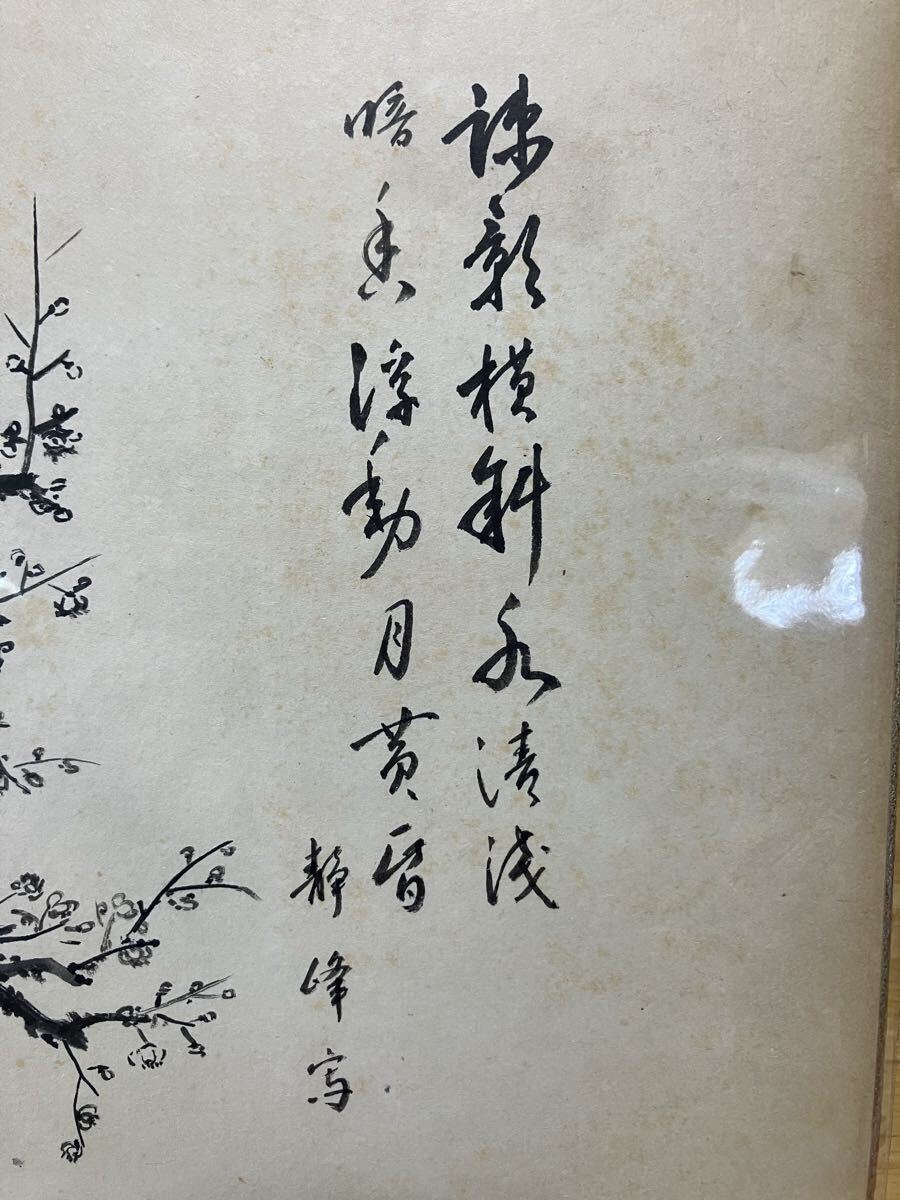 疎影横斜水清浅
暗香浮動月黄昏
静峰写